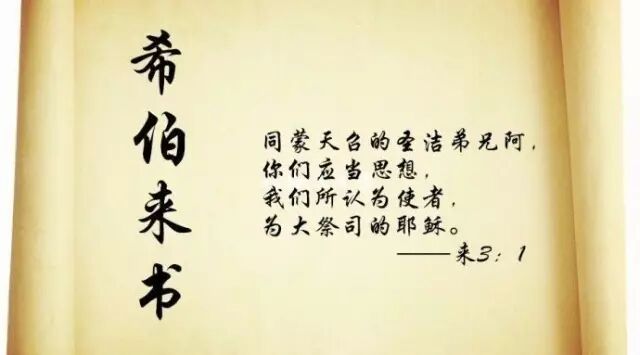 希伯来书
同蒙天召的圣洁弟兄阿，
你们应当思想，
我们所认为使者，
为大祭司的耶稣。
——来3：1